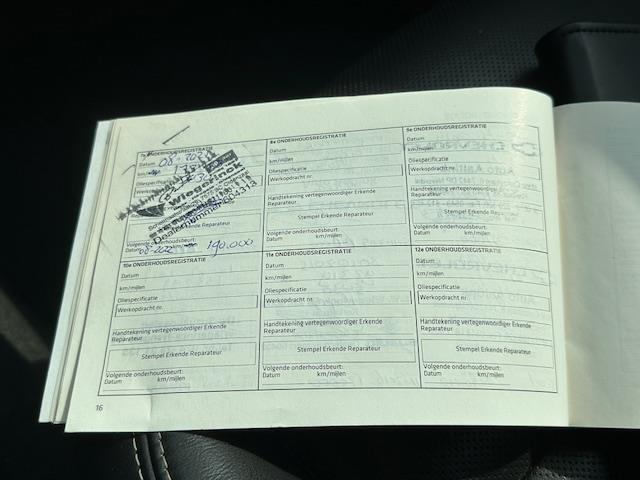 7e ONDERHOUDSREGISTRATIE
Datum 08-202
km/
Oliespecificatie
Werkopdracht
Wiegerinck
Dealernummer
Volgende onderhoudsbeurt:
Datum 190.000
8e ONDERHOUDSREGISTRATIE
Datum
km/mijlen
Oliespecificatie
Werkopdracht nr.
Handtekening vertegenwoordiger Erkende
Reparateur
Stempel Erkende Reparateur
Volgende onderhoudsbeurt:
Datum km/mijlen
9e ONDERHOUDSREGISTRATIE
Datum
km/mijlen
Oliespecificatie
Werkopdracht nr.
Handtekening vertegenwoordiger Erkende
Reparateur
Stempel Erkende Reparateur
Volgende onderhoudsbeurt:
Datum km/mijlen
10e ONDERHOUDSREGISTRATIE
Datum
km/mijlen
Oliespecificatie
Werkopdracht nr.
Handtekening vertegenwoordiger Erkende
Reparateur
Stempel Erkende Reparateur
Volgende onderhoudsbeurt:
Datum km/mijlen
11e ONDERHOUDSREGISTRATIE
Datum
km/mijlen
Oliespecificatie
Werkopdracht nr.
Handtekening vertegenwoordiger Erkende
Reparateur
Stempel Erkende Reparateur
Volgende onderhoudsbeurt:
Datum km/mijlen
12e ONDERHOUDSREGISTRATIE
Datum
km/mijlen
Oliespecificatie
Werkopdracht nr.
Handtekening vertegenwoordiger Erkende
Reparateur
Stempel Erkende Reparateur
Volgende onderhoudsbeurt:
Datum km/mijlen
16